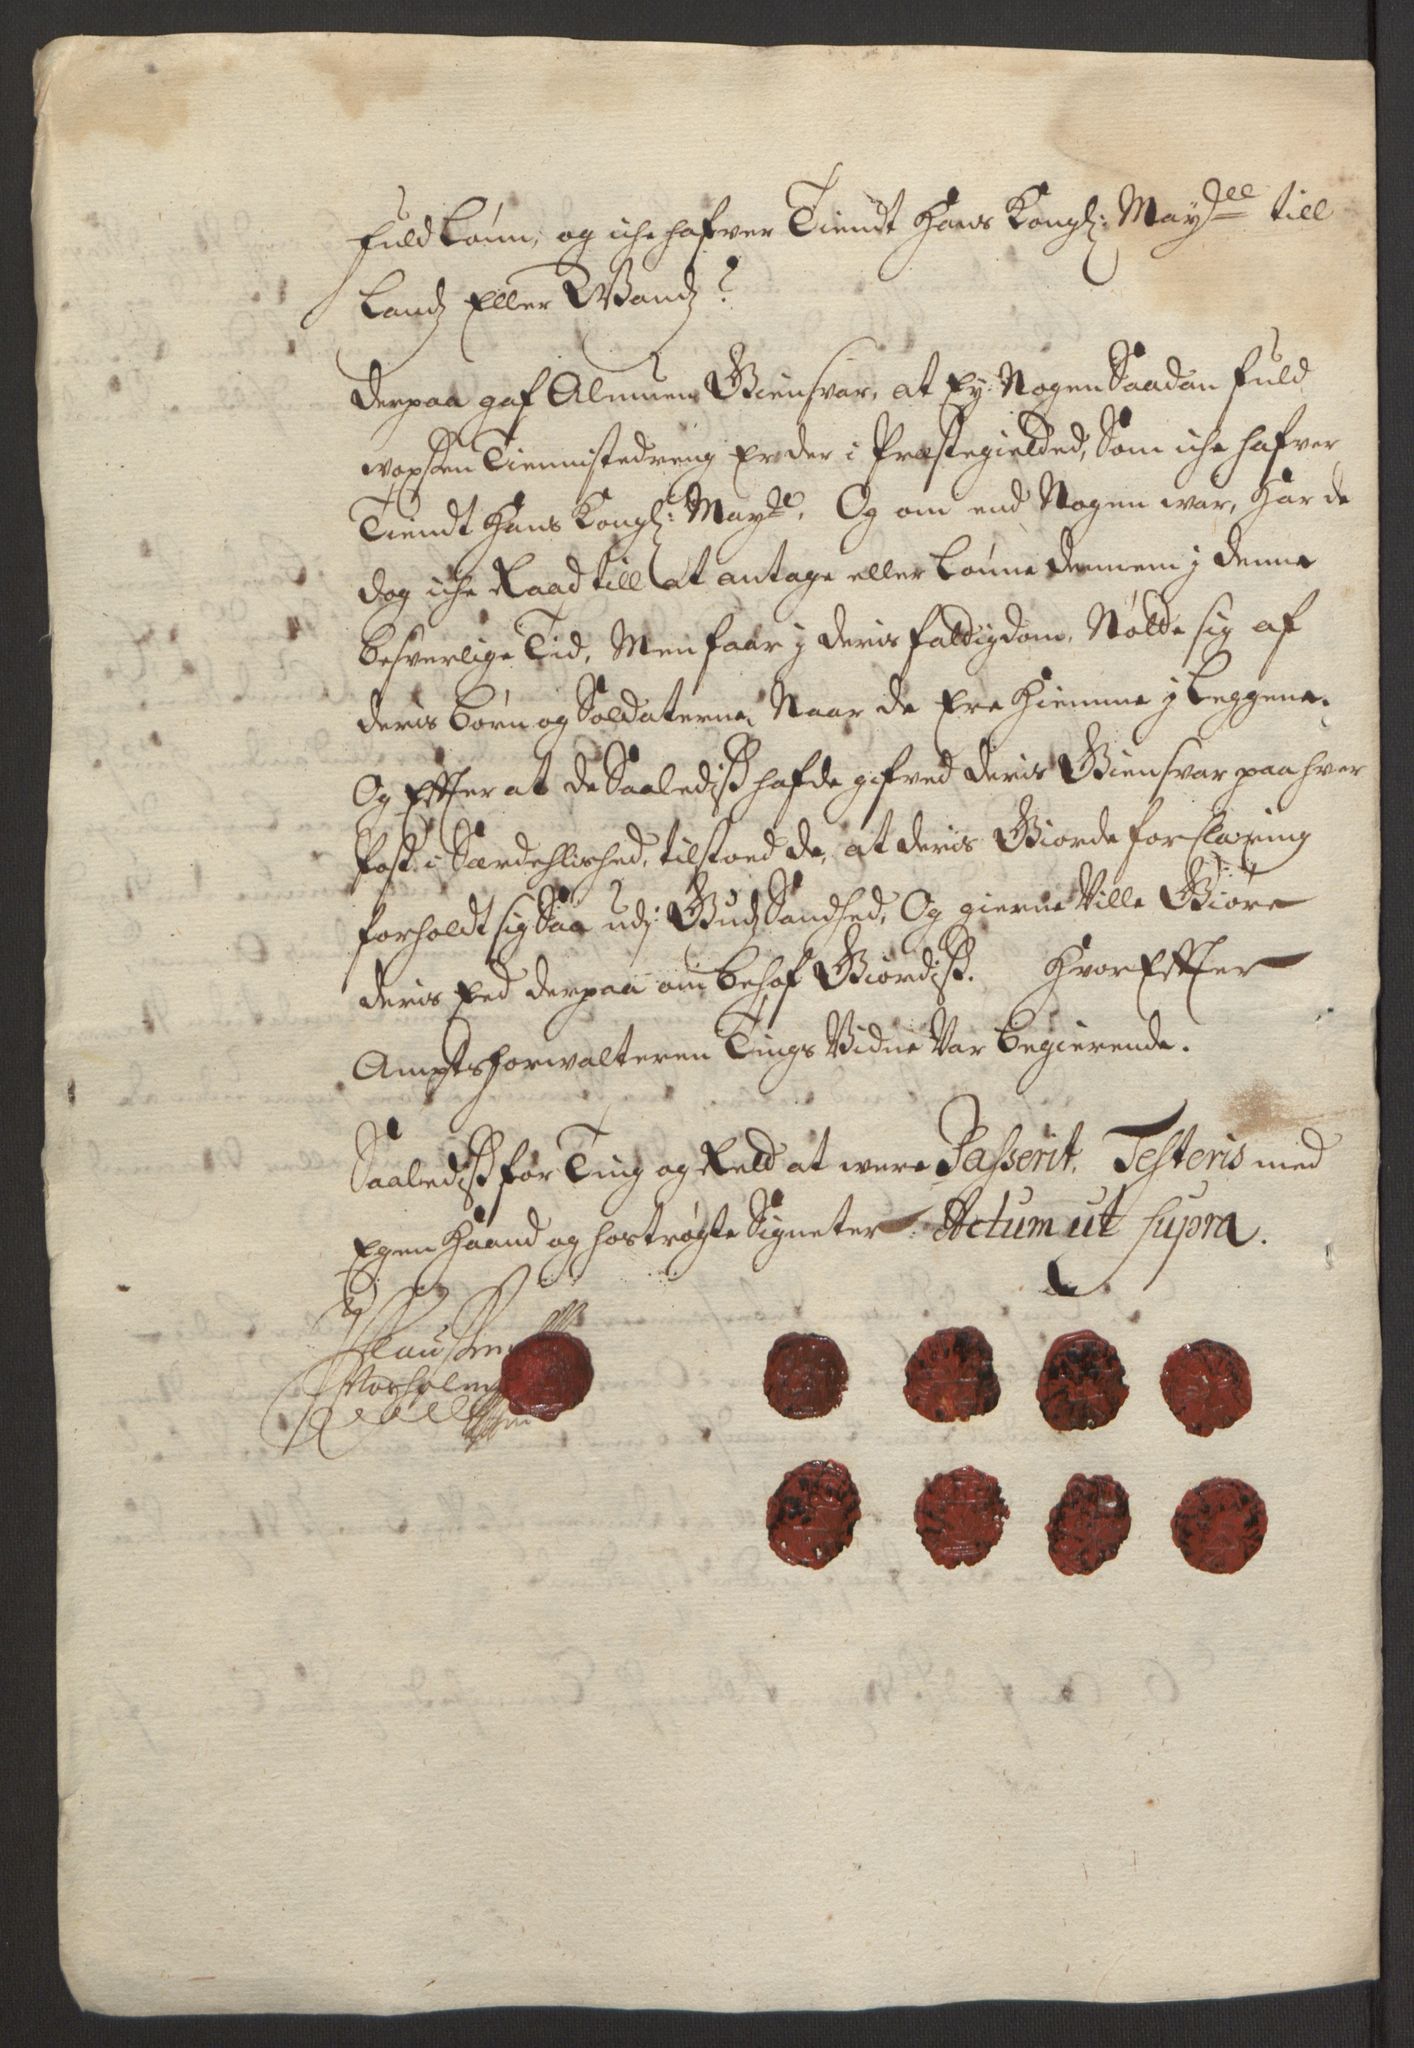 fuld Lønn, og iche hafver Tient Hans Kongl: May:tt till
Landz Eller Wandz?
Derpaa gaf Almuen Giensvar, at Ey Nogen Saadan fuld
voxen Tiennistedreng Er der i Præstegieldet, Som iche hafver
Tiendt Hans Kongl: May:tt, Og om end Nogen war, har de
dog iche Raad till at antage eller Lønne dennem j denne
besverlige Tid, Men faar j deris fattigdom, Nøtte sig af
deris børn og Soldaterne, Naar de Ere Hiemme j Leggene.
Og Effter at de Saaledis hafde gifved deris Giensvar paa hver
Post i Særdehlished, tilstoed de, at deris Giorde forklaring
forholdt sig Saa udj Gudz Sandhed, Og gierne Ville Giøre
deris Eed derpaa om behof Giordis. Hvor Effter
Amptsforwalteren Tings Vidne Var begierende.
Saaledis for Ting og Reld at were Passerit, Testeris med
Egen Haand og hostrøgte Signeter. Actum ut supra.